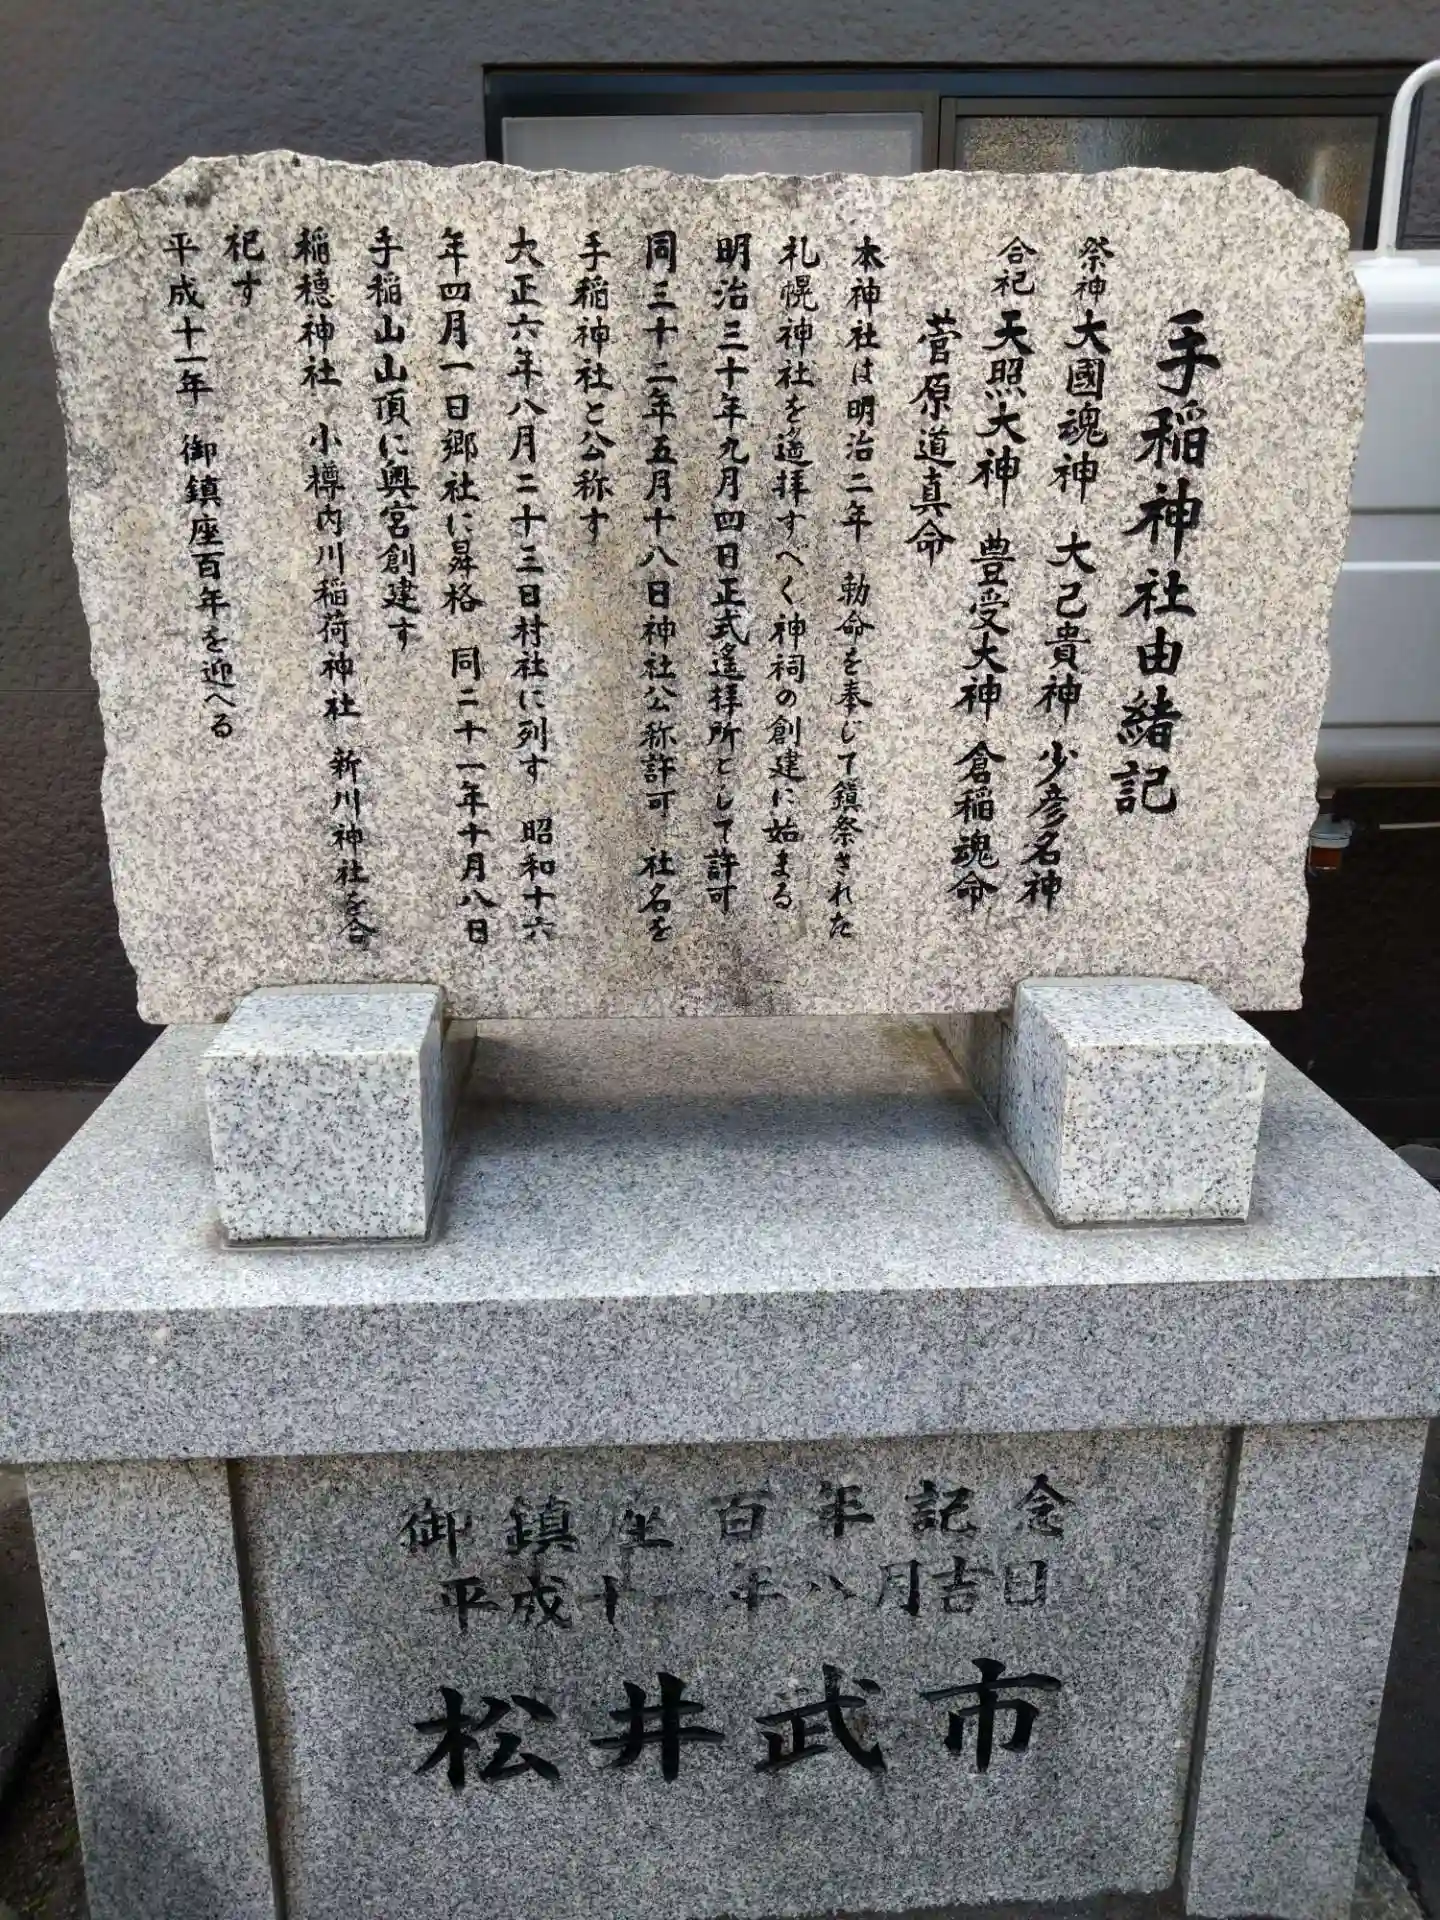 手稲神社由緒記
祭神 大國魂神 大己貴神 少彦名神
合祀 天照大神 豊受大神 倉稲魂命
菅原道真命
本神社は明治二年 勅命を奉じて鎮祭された
札幌神社を遙拝すべく神祠の創建に始まる
明治三十年九月四日正式遙拝所として許可
同三十二年五月十八日神社公称許可 社名を
手稲神社と公称す
大正六年八月二十三日村社に列す 昭和十六
年四月一日郷社に昇格 同二十一年十月八日
手稲山山頂に奥宮創建す
稲穂神社 小樽内川稲荷神社 新川神社を合
祀す
平成十一年 御鎮座百年を迎へる
御鎮座百年記念
平成十一年八月吉日
松井武市